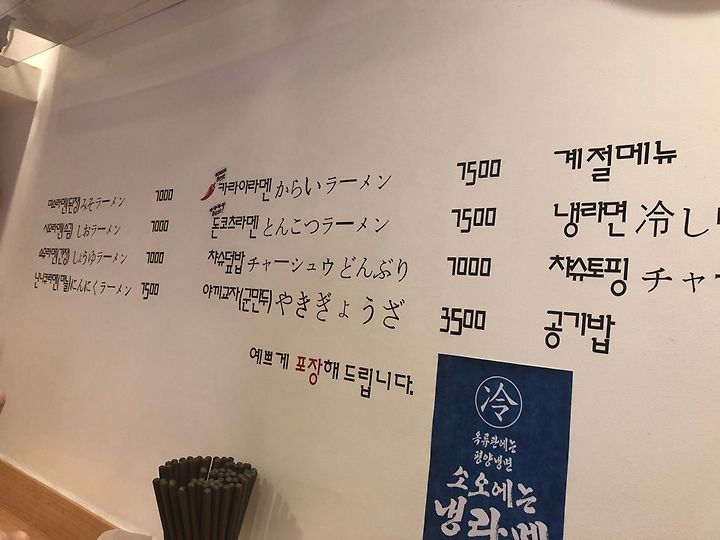 미소라멘(된장) みそラーメン 7000
시오라멘(소금) しおラーメン 7000
쇼유라멘(간장) しょうゆラーメン 7000
닌니쿠라멘(마늘) にんにくラーメン 7500
카라이라멘 からいラーメン 7500
돈코츠라멘 とんこつラーメン 7500
챠슈덮밥 チャーシュウどんぶり 7000
야끼교자(군만두) やきぎょうざ 3500
예쁘게 포장해 드립니다.
계절메뉴
냉라면 冷し
챠슈토핑 チャ
공기밥
冷
옥류관에는
평양냉면
소오에는
냉라멘